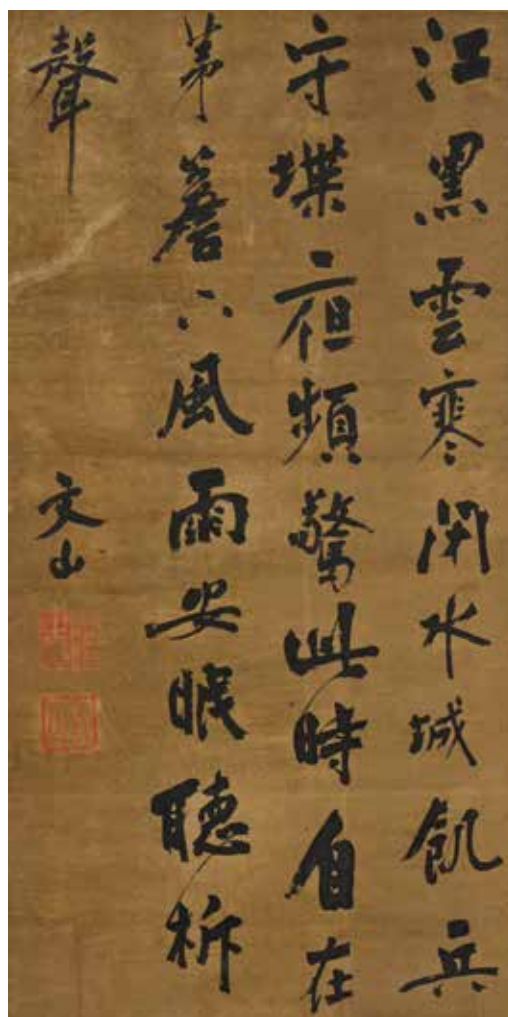 江黑雲寒閉水城飢兵
守堞夜頻驚此時自在
茅簷下風雨安眠聽柝
聲
文山